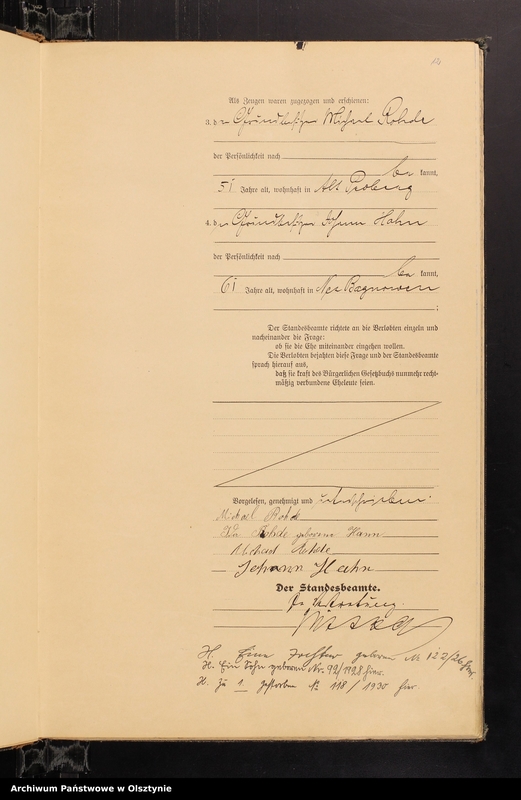 Als Zeugen waren zugezogen und erschienen:
3. der Grundbesitzer Michael Rohde
der Persönlichkeit nach
be kannt,
51 Jahre alt, wohnhaft in Alt Proberg
4. der Grundbesitzer Johann Hahn
der Persönlichkeit nach
be kannt,
61 Jahre alt, wohnhaft in Neu Bagnowen
;
Der Standesbeamte richtete an die Verlobten einzeln und
nacheinander die Frage:
ob sie die Ehe miteinander eingehen wollen.
Die Verlobten bejahten diese Frage und der Standesbeamte
sprach hierauf aus,
daß sie kraft des Bürgerlichen Gesetzbuchs nunmehr recht-
mäßig verbundene Eheleute seien.
Vorgelesen, genehmigt und unterschrieben:
Michael Rohde
Rohde geborene Hann
Michael Rohde
Johann Hahn
Der Standesbeamte.
In Vertretung.
H. Eine Tochter geboren Nr 122/26 hier.
H. Ein Sohn geboren Nr. 92/1928 hier.
H. Zu 1. gestorben Nr 118/1930 hier
Archiwum Państwowe w Olsztynie